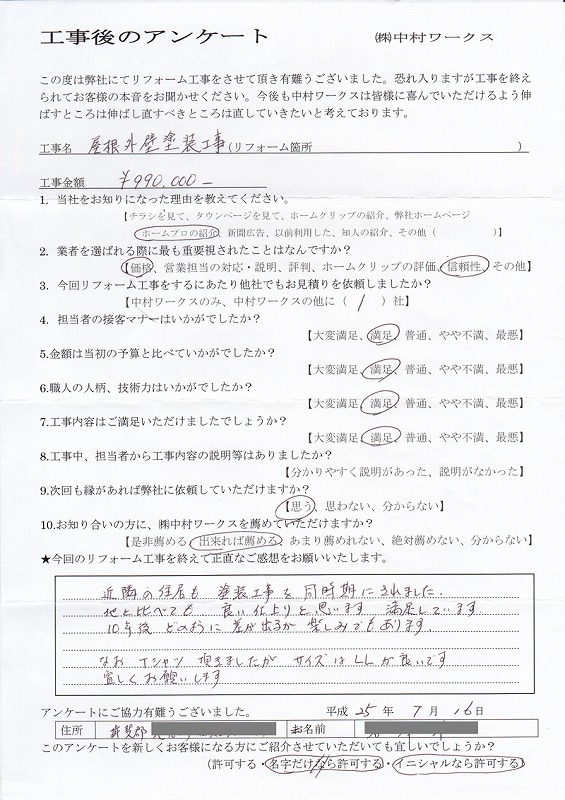 工事後のアンケート ㈱中村ワークス
この度は弊社にてリフォーム工事をさせて頂き有難うございました。恐れ入りますが工事を終え
られてお客様の本音をお聞かせください。今後も中村ワークスは皆様に喜んでいただけるよう伸
ばすところは伸ばし直すべきところは直していきたいと考えております。
工事名 屋根外壁塗装工事(リフォーム箇所 )
工事金額 ¥990,000-
1. 当社をお知りになった理由を教えてください。
【チラシを見て、タウンページを見て、ホームクリップの紹介、弊社ホームページ
ホームプロの紹介、新聞広告、以前利用した、知人の紹介、その他（ ）】
2. 業者を選ばれる際に最も重要視されたことはなんですか？
【価格、営業担当の対応・説明、評判、ホームクリップの評価、信頼性、その他】
3. 今回リフォーム工事をするにあたり他社でもお見積りを依頼しましたか？
【中村ワークスのみ、中村ワークスの他に（ 1 ）社】
4. 担当者の接客マナーはいかがでしたか？
【大変満足、満足、普通、やや不満、最悪】
5.金額は当初の予算と比べていかがでしたか？
【大変満足、満足、普通、やや不満、最悪】
6.職人の人柄、技術力はいかがでしたか？
【大変満足、満足、普通、やや不満、最悪】
7.工事内容はご満足いただけましたでしょうか？
【大変満足、満足、普通、やや不満、最悪】
8.工事中、担当者から工事内容の説明等はありましたか？
【分かりやすく説明があった、説明がなかった】
9.次回も縁があれば弊社に依頼していただけますか？
【思う、思わない、分からない】
10.お知り合いの方に、㈱中村ワークスを薦めていただけますか？
【是非薦める、出来れば薦める、あまり薦めれない、絶対薦めない、分からない】
★今回のリフォーム工事を終えて正直なご感想をお願いいたします。
近隣の住居も 塗装工事を同時期にされました.
他と比べても 良い仕上りと思います 満足しています.
10年後 どのように差が出るか 楽しみでもあります.
なお Tシャツ 頂きましたが サイズはLLが良いです
宜しくお願いします
アンケートにご協力有難うございました。 平成 25 年 7 月 16 日
住所 お名前
このアンケートを新しくお客様になる方にご紹介させていただいても宜しいでしょうか？
(許可する・名字だけなら許可する・イニシャルなら許可する)